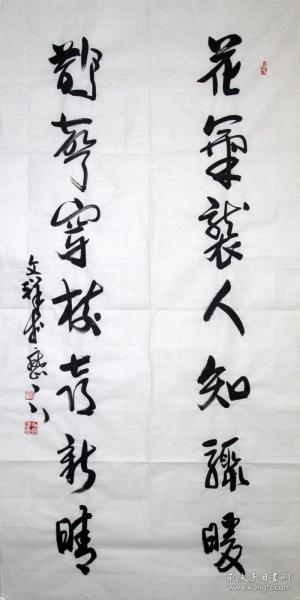 花氣襲人知驟暖
鵲聲穿枝喜新晴
文祥書
孔夫子旧书网
www.kongfz.com